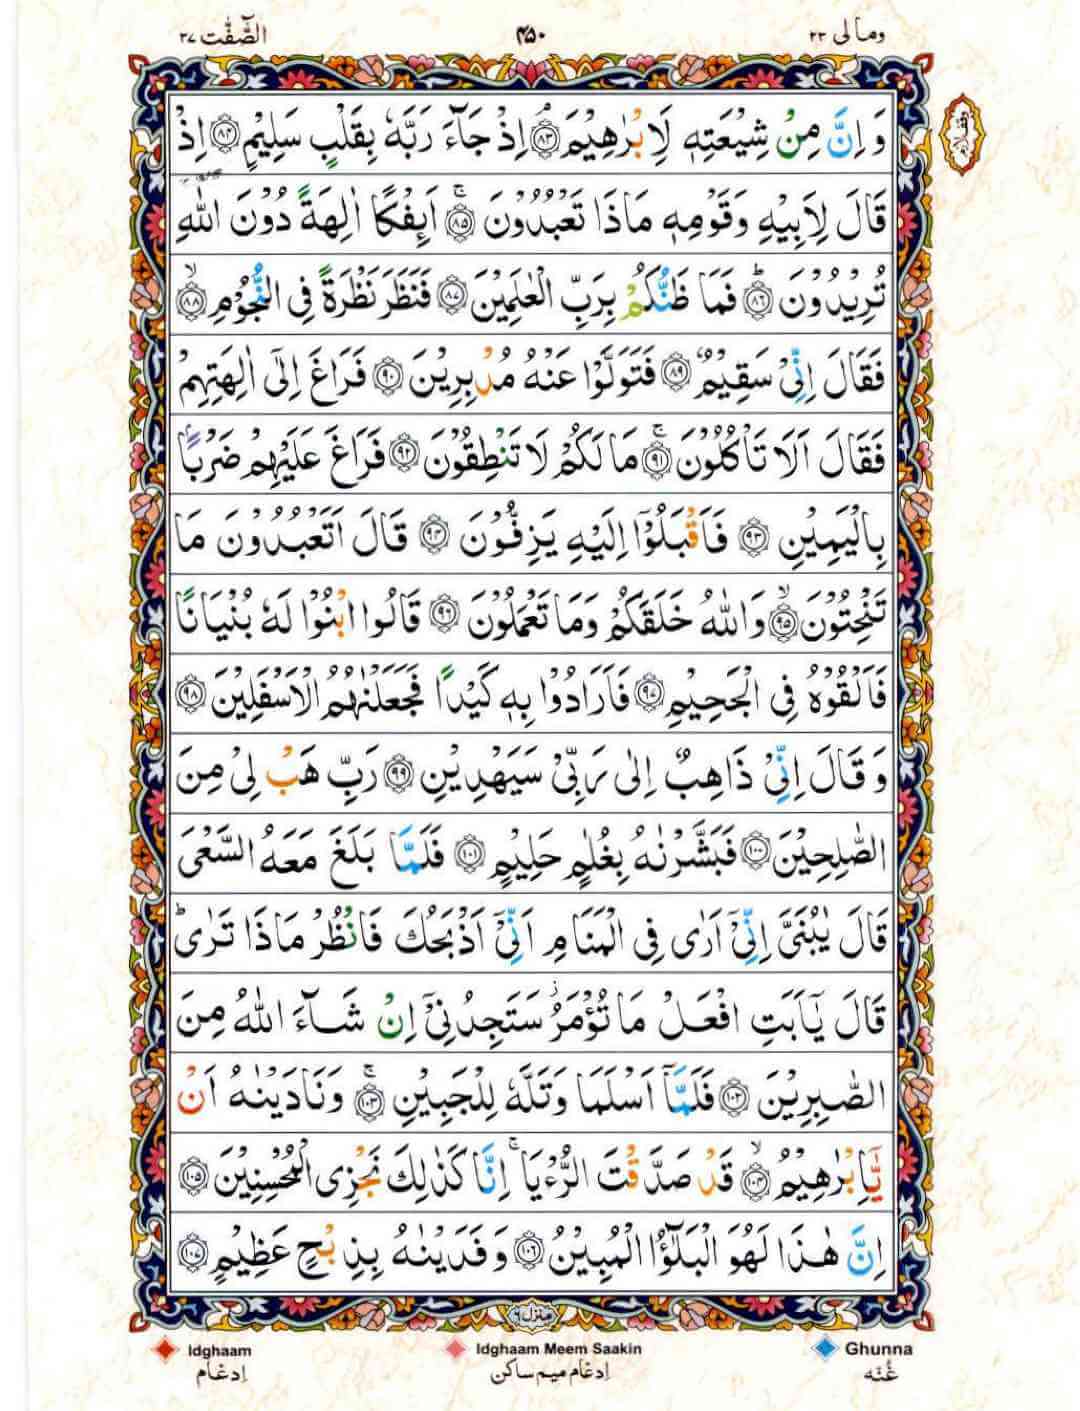 وما لی ٢٣ ٤٥٠ الصّٰٓفّٰت ٣٧
وَ اِنَّ مِنْ شِيْعَتِهٖ لَاِبْرٰهِيْمَ ۘ﴿٨٣﴾ اِذْ جَآءَ رَبَّهٗ بِقَلْبٍ سَلِيْمٍ ﴿٨٤﴾ اِذْ
قَالَ لِاَبِيْهِ وَقَوْمِهٖ مَاذَا تَعْبُدُوْنَ ۚ﴿٨٥﴾ اَىِٕفْكًا اٰلِهَةً دُوْنَ اللّٰهِ
تُرِيْدُوْنَ ؕ﴿٨٦﴾ فَمَا ظَنُّكُمْ بِرَبِّ الْعٰلَمِيْنَ ﴿٨٧﴾ فَنَظَرَ نَظْرَةً فِى النُّجُوْمِ ۙ﴿٨٨﴾
فَقَالَ اِنِّىْ سَقِيْمٌ ﴿٨٩﴾ فَتَوَلَّوْا عَنْهُ مُدْبِرِيْنَ ﴿٩٠﴾ فَرَاغَ اِلٰٓى اٰلِهَتِهِمْ
فَقَالَ اَلَا تَاْكُلُوْنَ ۚ﴿٩١﴾ مَا لَكُمْ لَا تَنْطِقُوْنَ ﴿٩٢﴾ فَرَاغَ عَلَيْهِمْ ضَرْبًاۢ
بِالْيَمِيْنِ ﴿٩٣﴾ فَاَقْبَلُوْٓا اِلَيْهِ يَزِفُّوْنَ ﴿٩٤﴾ قَالَ اَتَعْبُدُوْنَ مَا
تَنْحِتُوْنَ ۙ﴿٩٥﴾ وَاللّٰهُ خَلَقَكُمْ وَمَا تَعْمَلُوْنَ ﴿٩٦﴾ قَالُوا ابْنُوْا لَهٗ بُنْيَانًا
فَاَلْقُوْهُ فِى الْجَحِيْمِ ﴿٩٧﴾ فَاَرَادُوْا بِهٖ كَيْدًا فَجَعَلْنٰهُمُ الْاَسْفَلِيْنَ ﴿٩٨﴾
وَ قَالَ اِنِّىْ ذَاهِبٌ اِلٰى رَبِّىْ سَيَهْدِيْنِ ﴿٩٩﴾ رَبِّ هَبْ لِىْ مِنَ
الصّٰلِحِيْنَ ﴿١٠٠﴾ فَبَشَّرْنٰهُ بِغُلٰمٍ حَلِيْمٍ ﴿١٠١﴾ فَلَمَّا بَلَغَ مَعَهُ السَّعْىَ
قَالَ يٰبُنَىَّ اِنِّىْٓ اَرٰى فِى الْمَنَامِ اَنِّىْٓ اَذْبَحُكَ فَانْظُرْ مَاذَا تَرٰى ؕ
قَالَ يٰٓاَبَتِ افْعَلْ مَا تُؤْمَرُ ؗ سَتَجِدُنِىْٓ اِنْ شَآءَ اللّٰهُ مِنَ
الصّٰبِرِيْنَ ﴿١٠٢﴾ فَلَمَّآ اَسْلَمَا وَتَلَّهٗ لِلْجَبِيْنِ ۚ﴿١٠٣﴾ وَنَادَيْنٰهُ اَنْ
يّٰٓاِبْرٰهِيْمُ ۙ﴿١٠٤﴾ قَدْ صَدَّقْتَ الرُّءْيَا ۚ اِنَّا كَذٰلِكَ نَجْزِى الْمُحْسِنِيْنَ ﴿١٠٥﴾
اِنَّ هٰذَا لَهُوَ الْبَلٰٓؤُا الْمُبِيْنُ ﴿١٠٦﴾ وَ فَدَيْنٰهُ بِذِبْحٍ عَظِيْمٍ ﴿١٠٧﴾
منزل ٦
Idghaam Idghaam Meem Saakin Ghunna
غُنّه اِدغام میم ساکن اِدغام